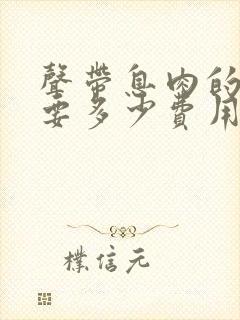 聲帶息肉的
要多少費用
樸信元